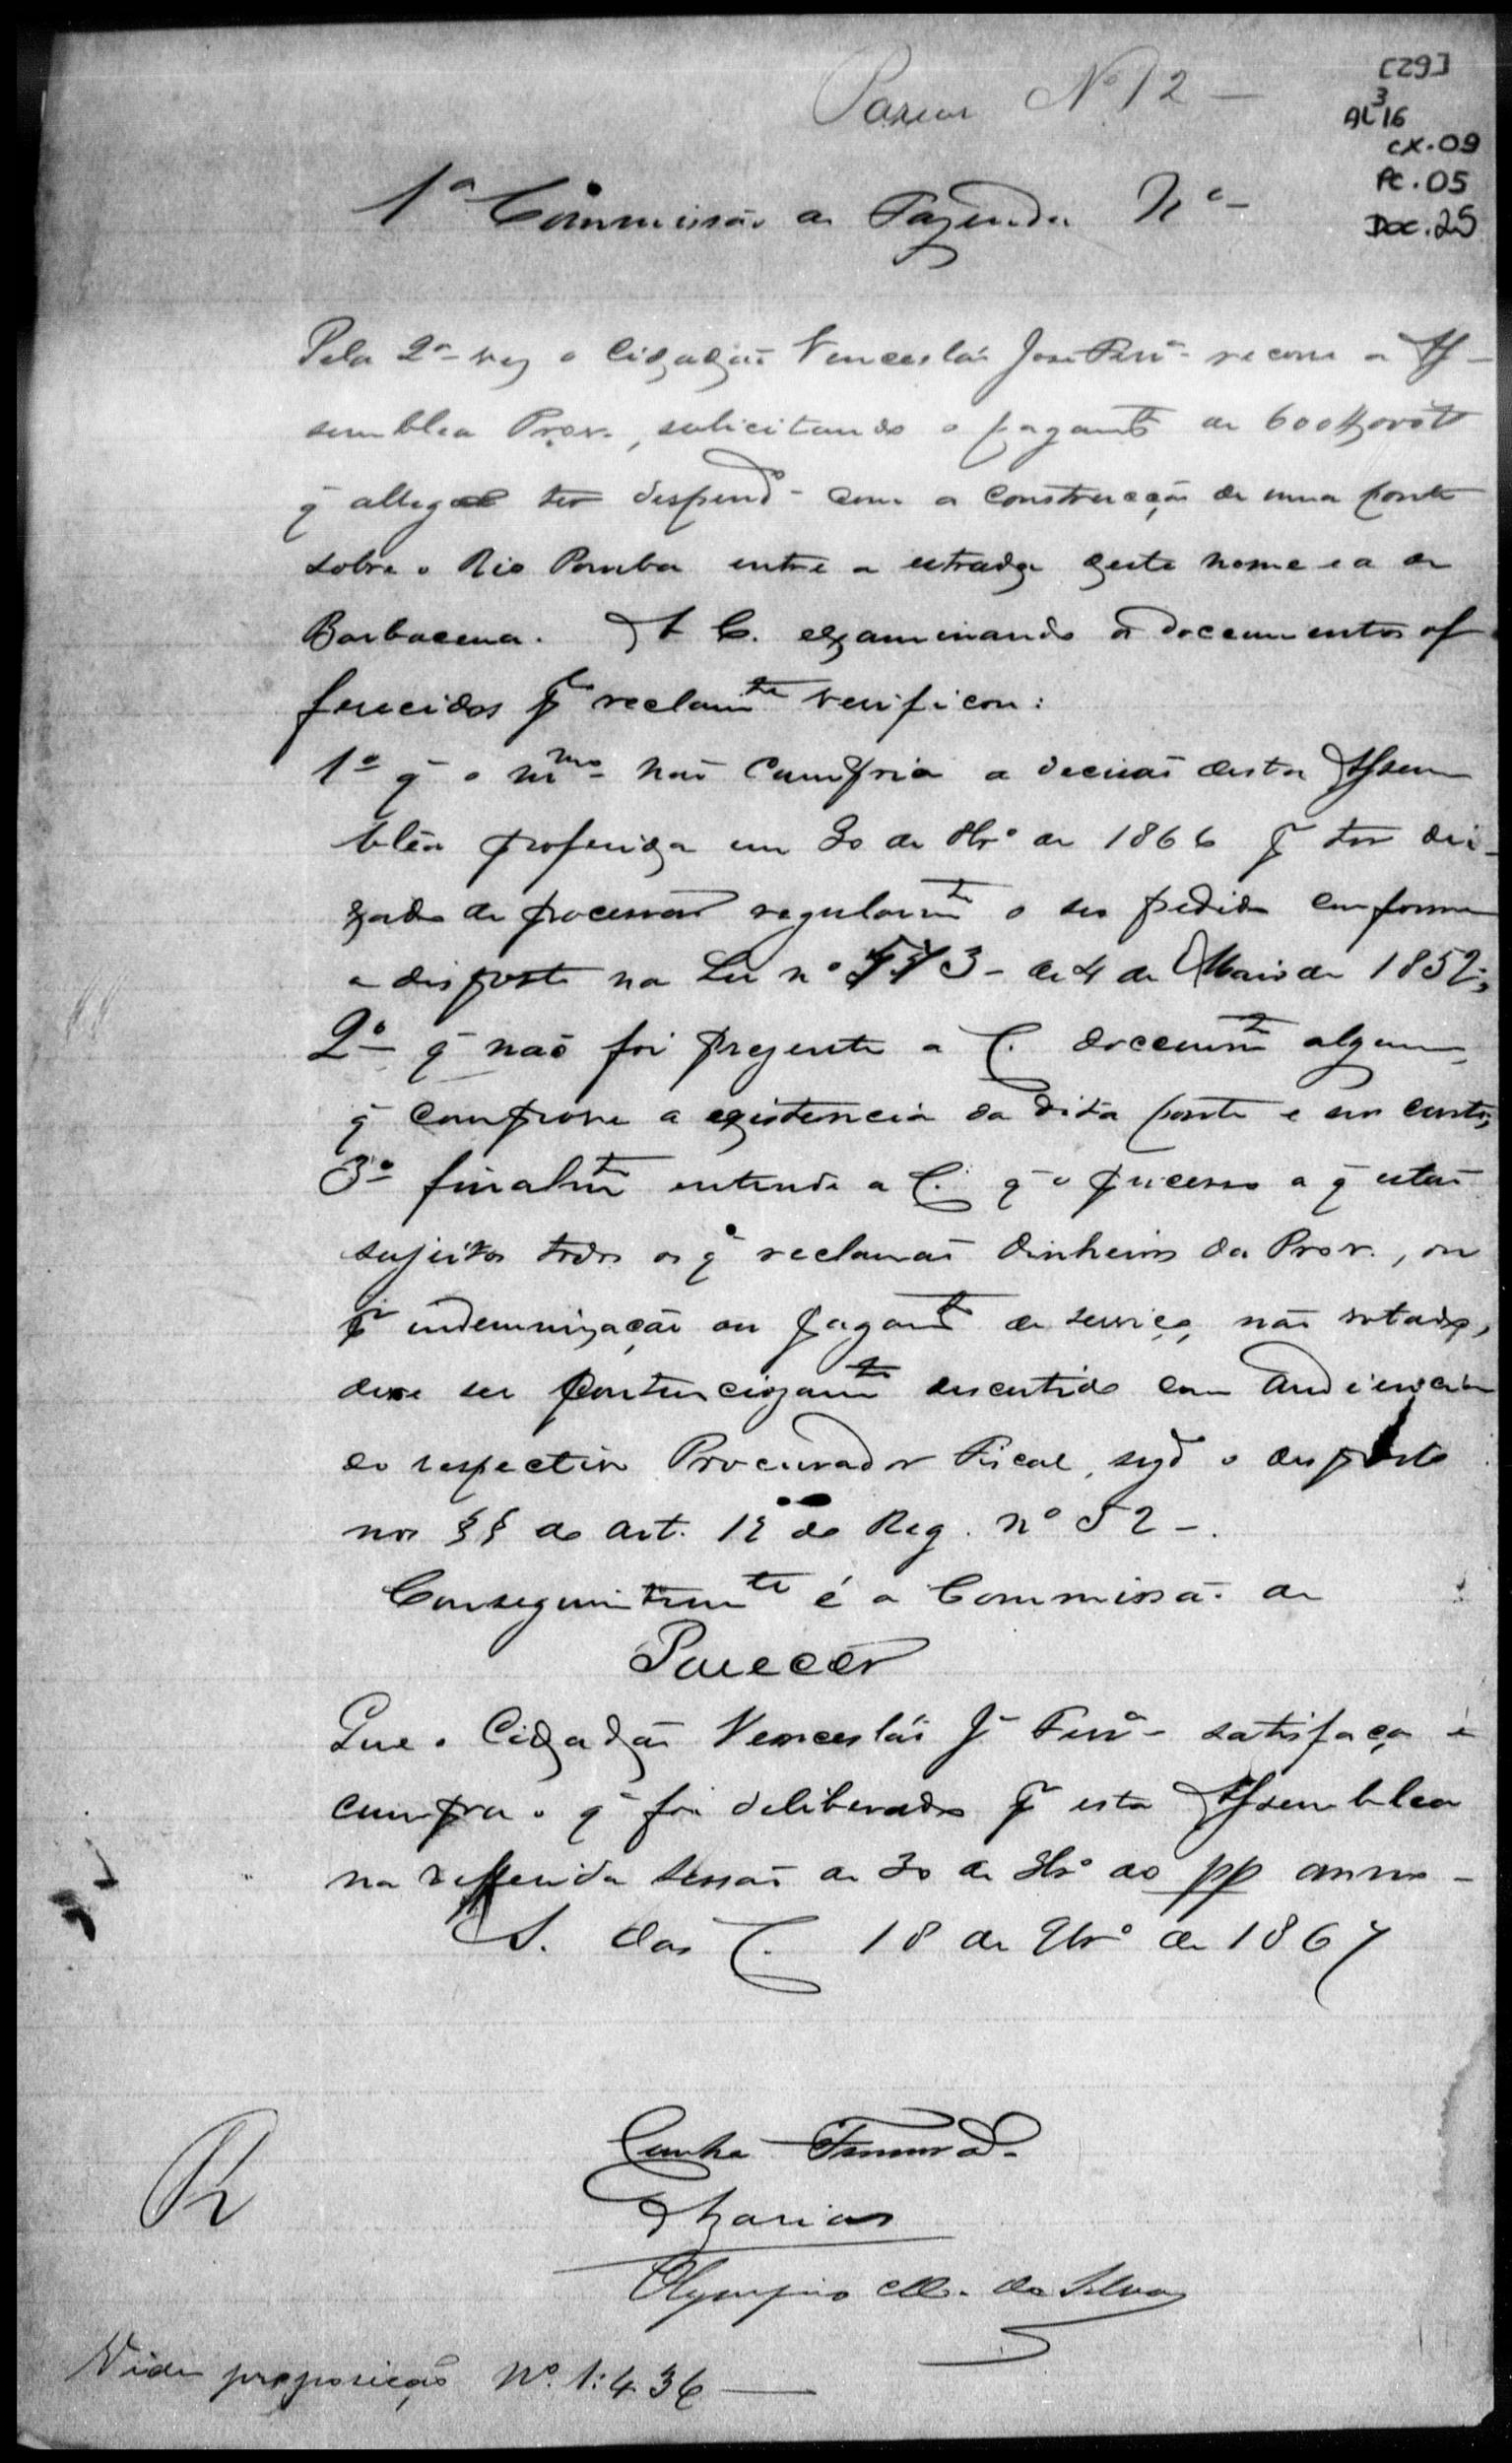 Parecer Nº 12 —
[29]
AL 3 16
CX. 09
PC. 05
Doc. 25
1ª Commissão de Fazenda Nº —
Pela 2ª vez o Cidadão Venceslá José Ferrª recorre a As-
semblea Prov., solicitando o pagamto de 600$000
q̃ allega ter despend com a construcção de uma ponte
sobre o Rio Pomba entre a estrada deste nome e a de
Barbacena. A C. examinando os documentos of
ferecidos plo reclamte verificou:
1º q̃ o mmo não cumpria a decisão desta Assem
bléa proferida em 30 de 8brº de 1866 pr ter dei-
xado de processar regularmte o seo pedido conforme
o disposto na Lei nº 573 - de 4 de Maio de 1852;
2º q̃ não foi presente a C. documto algum
q̃ comprove a existencia da dita ponte e seu custo;
3º finalmte entende a C. q̃ o processo a q̃ estão
sujeitos todos os q̃ reclamão dinheiros da Prov., ou
pr indemnização ou pagamto de serviço não votado,
deve ser contenciozamte discutido com audiencia
do respectivo Procurador Fiscal, segd o disposto
nos §§ do art. 12 do Reg. nº 52 -.
Conseguintemte é a Commissão de
Parecer
Que o Cidadão Venceslá Jé Ferrª satisfaça e
cumpra o q̃ foi deliberado pr esta Assemblea
na refferida sessão de 30 de 8brº do pp anno -
S. das C. 18 de 9brº de 1867
Cunha
Olympio M. da Silva
R
Vide proposição Nº 1:436